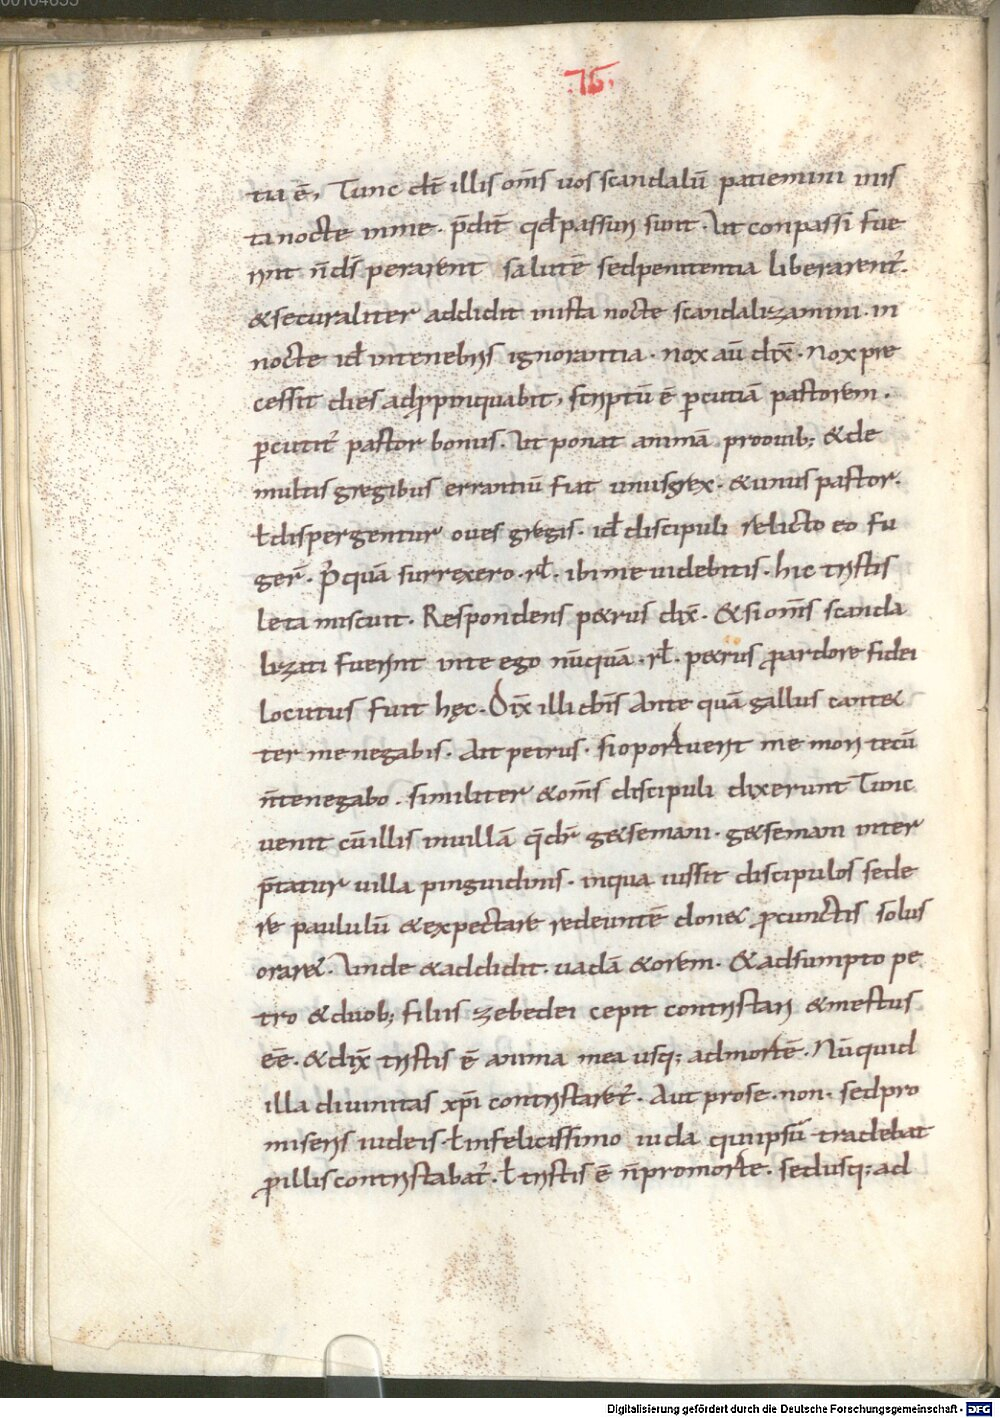 00104655
.76.
tia ē, Tunc dt̄ illis om̄s uos scandalū patiemini inis
ta nocte in me. p̄dit̄ qd̄ passuri sunt. Ut conpassi fue
rint n̄ dēsperarent salutē sed penitentia liberarent᷑.
& securaliter addidit in ista nocte scandalizamini. in
nocte id̄ in tenebris ignorantia. nox aū dix̄. Nox pre
cessit dies adp̱pinquabit, scriptū ē ꝑcutiā pastorem.
ꝑcutit᷑ pastor bonus. Ut ponat animā pro ouib; & de
multis gregibus errantiū fiat unus grex. & unus pastor.
ł dispergentur oues gregis. id̄ discipuli relicto eo fu
ger̄. P̄ quā surrexero. rł. ibi me uidebitis. hic tristis
leta miscuit. Respondens p&rus dix̄. & si om̄s scanda
lizati fuerint in te ego nūquā. rł. p&rus ꝓ ardore fidei
locutus fuit hęc. Dix̄ illi dn̄s Ante quā gallus cant&
ter me negabis. Ait petrus. si oportuerit me mori tecū
n̄ te negabo. similiter & om̄s discipuli dixerunt Tunc
uenit cū illis in uillā q̄ dr̄ g&semani. g&semani inter
p̄tatur uilla pinguidinis. in qua iussit discipulos sede
re paululū & expectare redeuntē don& ꝓ cunctis solus
orar&. Unde & addidit. uadā & orem. & adsumpto pe
tro & duob; filiis zebedei cepit contristari & mestus
eē. & dix̄ tristis ē anima mea usq; ad mortē. Nūquid
illa diuinitas xp̄i contristaret᷑. Aut pro se. non. sed pro
miseris iudeis. ł infelicissimo iuda qui ipsū tradebat
ꝓ illis contristabat᷑. ł tristis ē n̄ pro morte. sed usq; ad
Digitalisierung gefördert durch die Deutsche Forschungsgemeinschaft - DFG